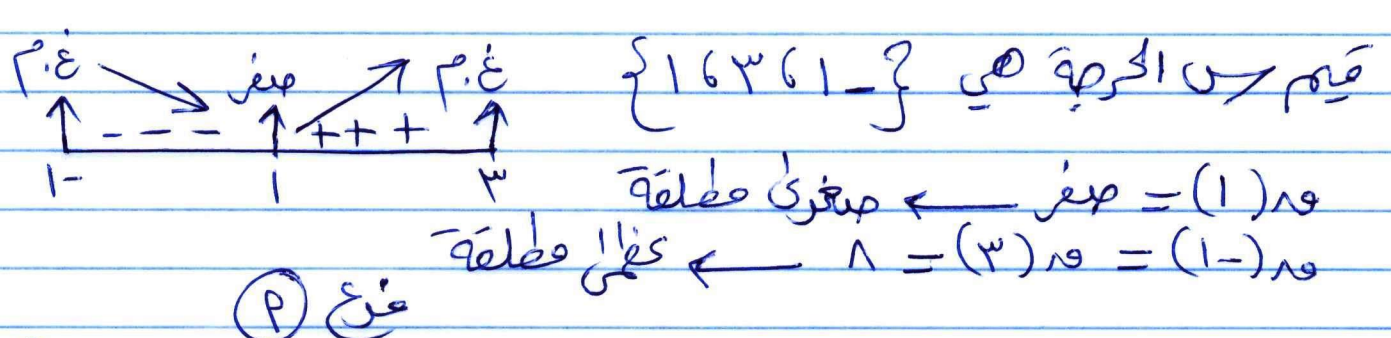 قيم س الحرجة هي {-١ ، ٣ ، ١}
غ.م صفر غ.م
- - - + + +
-١ ١ ٣
ق(١) = صفر ← صغرى مطلقة
ق(-١) = ق(٣) = ٨ ← عظمى مطلقة
فرع (م)